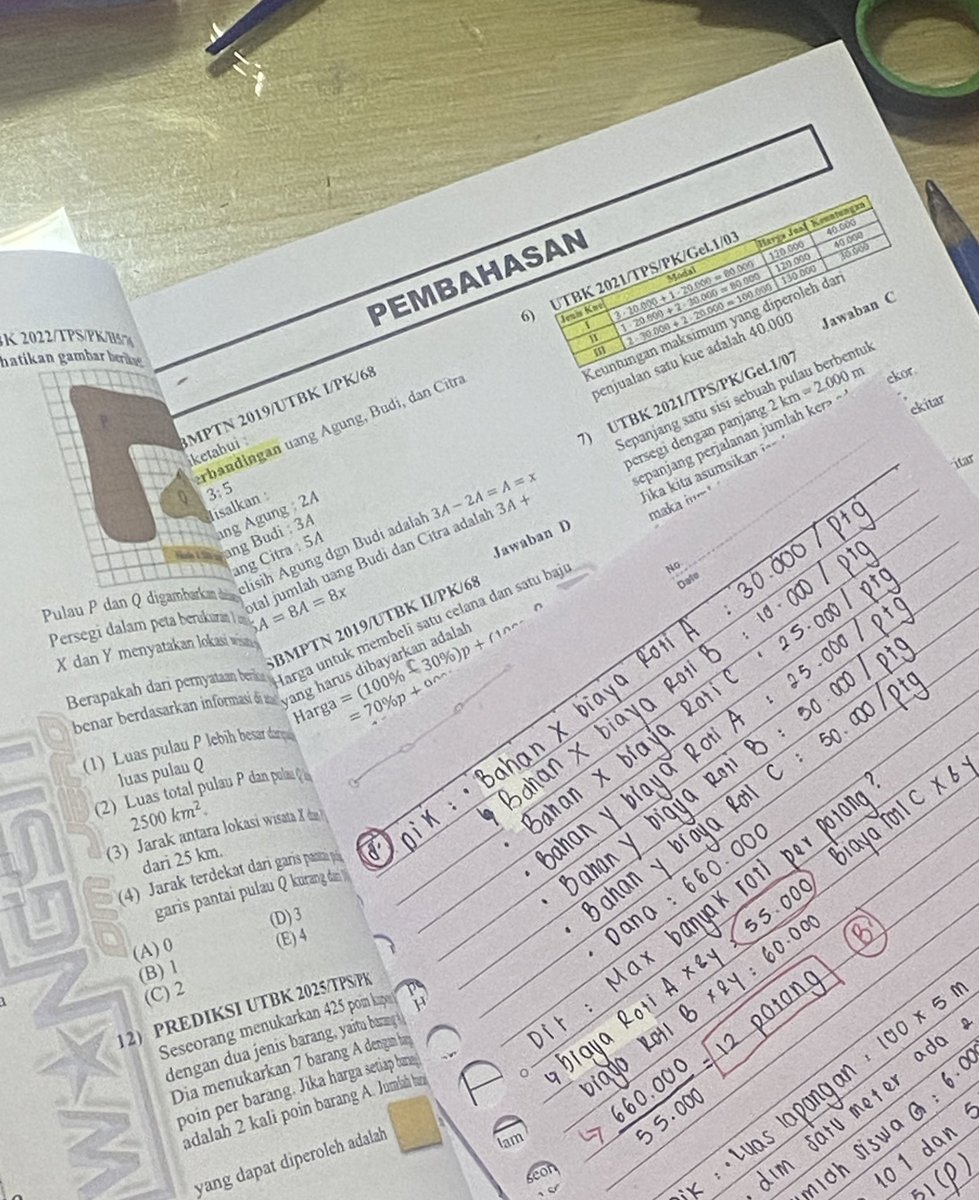 PEMBAHASAN
K 2022/TPS/PK/
hatikan gambar
P
Q
Pulau P dan Q digambarkan
Persegi dalam peta berukuran 1
X dan Y menyatakan lokasi wisata
Berapakah dari pernyataan
benar berdasarkan informasi di
(1) Luas pulau P lebih besar
luas pulau Q
(2) Luas total pulau P dan pulau
2500 km².
(3) Jarak antara lokasi wisata X
dari 25 km.
(4) Jarak terdekat dari garis pantai
garis pantai pulau Q kurang dari
(A) 0
(B) 1
(C) 2
(D) 3
(E) 4
12) PREDIKSI UTBK 2025/TPS/PK
Seseorang menukarkan 425 poin
dengan dua jenis barang, yaitu barang
Dia menukarkan 7 barang A dengan
poin per barang. Jika harga setiap barang
adalah 2 kali poin barang A. Jumlah
yang dapat diperoleh adalah
WANGSIT
BMPTN 2019/UTBK I/PK/68
iketahui :
erbandingan uang Agung, Budi, dan Citra
3: 5
isalkan :
ang Agung : 2A
ang Budi : 3A
ang Citra : 5A
elisih Agung dgn Budi adalah 3A − 2A = A = x
otal jumlah uang Budi dan Citra adalah 3A +
A = 8A = 8x
Jawaban D
SBMPTN 2019/UTBK II/PK/68
Harga untuk membeli satu celana dan satu baju
yang harus dibayarkan adalah
Harga = (100% 30%)p + (100
= 70%p +
6) UTBK 2021/TPS/PK/Gel.1/03
Jenis Kue Modal Harga Jual Keuntungan
I 3 · 20.000 + 1 · 20.000 = 80.000 120.000 40.000
II 1 · 20.000 + 2 · 30.000 = 80.000 120.000 40.000
III 2 · 30.000 + 2 · 20.000 = 100.000 130.000 30.000
Keuntungan maksimum yang diperoleh dari
penjualan satu kue adalah 40.000
Jawaban C
7) UTBK 2021/TPS/PK/Gel.1/07
Sepanjang satu sisi sebuah pulau berbentuk
persegi dengan panjang 2 km = 2.000 m
sepanjang perjalanan jumlah kera ekor.
Jika kita asumsikan ekitar
maka itar
No
Date
8. Dik : • Bahan X biaya Roti A : 30.000 / ptg
↳ Bahan X biaya Roti B : 10.000 / ptg
Bahan X biaya Roti C : 25.000 / ptg
• Bahan Y biaya Roti A : 25.000 / ptg
• Bahan Y biaya Roti B : 50.000 / ptg
• Bahan Y biaya Roti C : 50.000 / ptg
• Dana : 660.000
Dit : Max banyak roti per potong ?
↳ biaya Roti A x & y : 55.000 biaya roti C x & y
biaya Roti B x & y : 60.000
↳ 660.000 = 12 potong B.
55.000
: • Luas lapangan : 100 x 5 m
dlm satu meter ada
siswa G : 6.000
101 dan
51 (D)